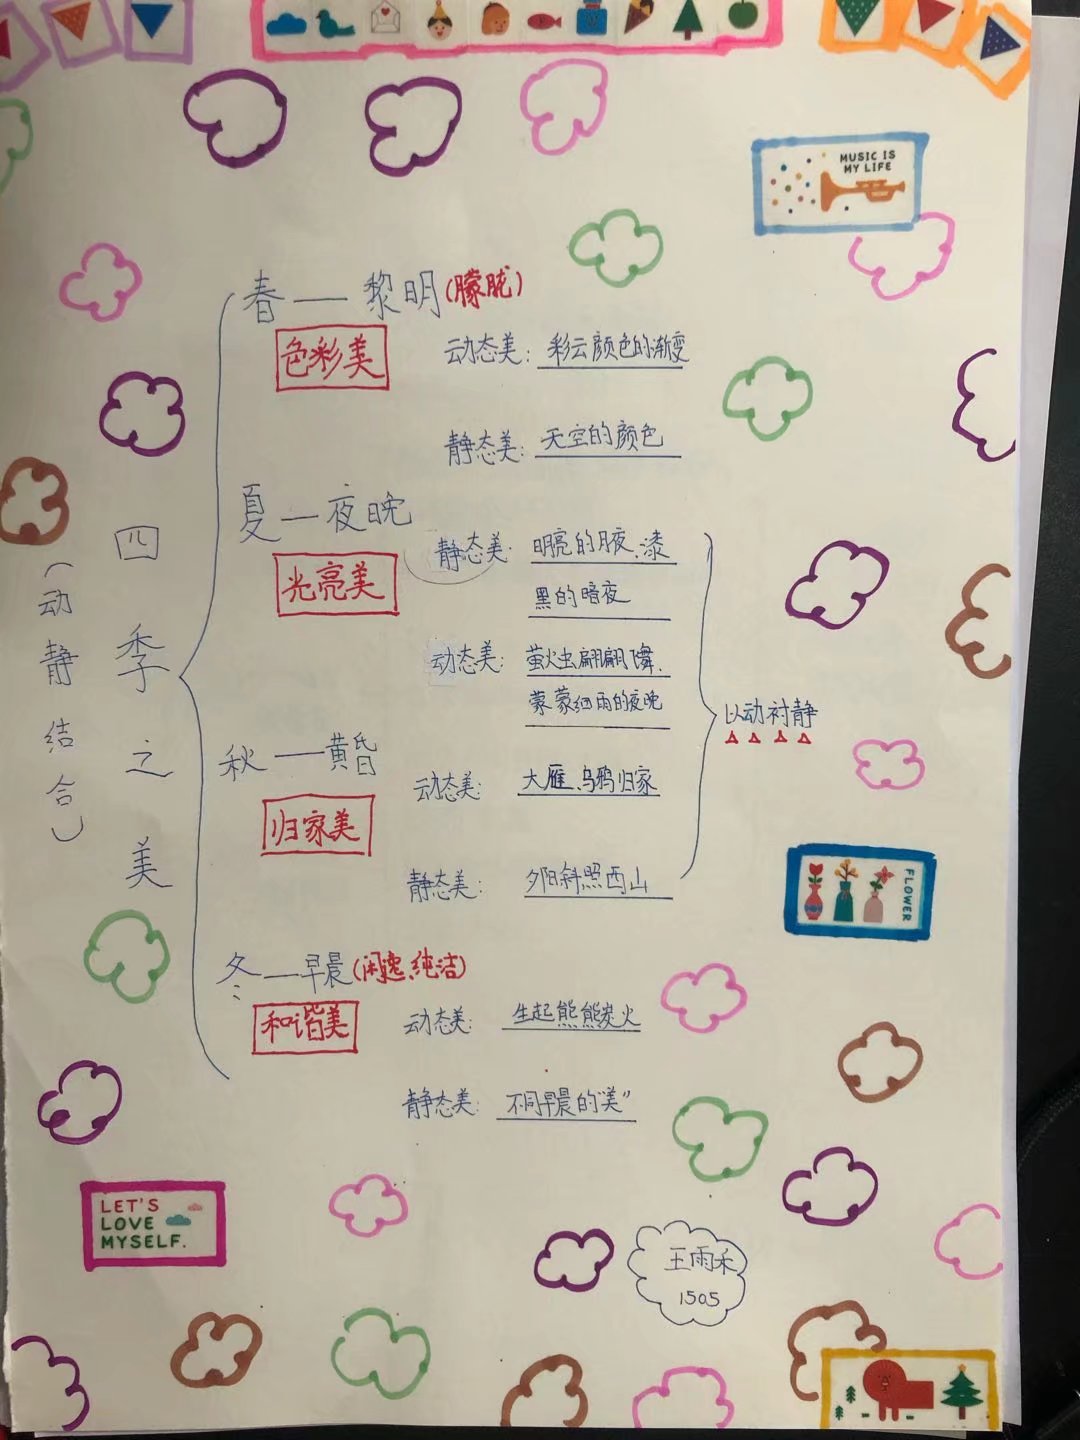 MUSIC IS
MY LIFE
四季之美
（动静结合）
春——黎明(朦胧)
色彩美
动态美: 彩云颜色的渐变
静态美: 天空的颜色
夏—夜晚
光亮美
静态美: 明亮的月夜、漆
黑的暗夜
动态美: 萤火虫翩翩飞舞、
蒙蒙细雨的夜晚
以动衬静
秋——黄昏
归家美
动态美: 大雁、乌鸦归家
静态美: 夕阳斜照西山
FLOWER
冬——早晨(闲逸、纯洁)
和谐美
动态美: 生起熊熊炭火
静态美: 不同早晨的“美”
LET'S
LOVE
MYSELF.
王雨禾
1505